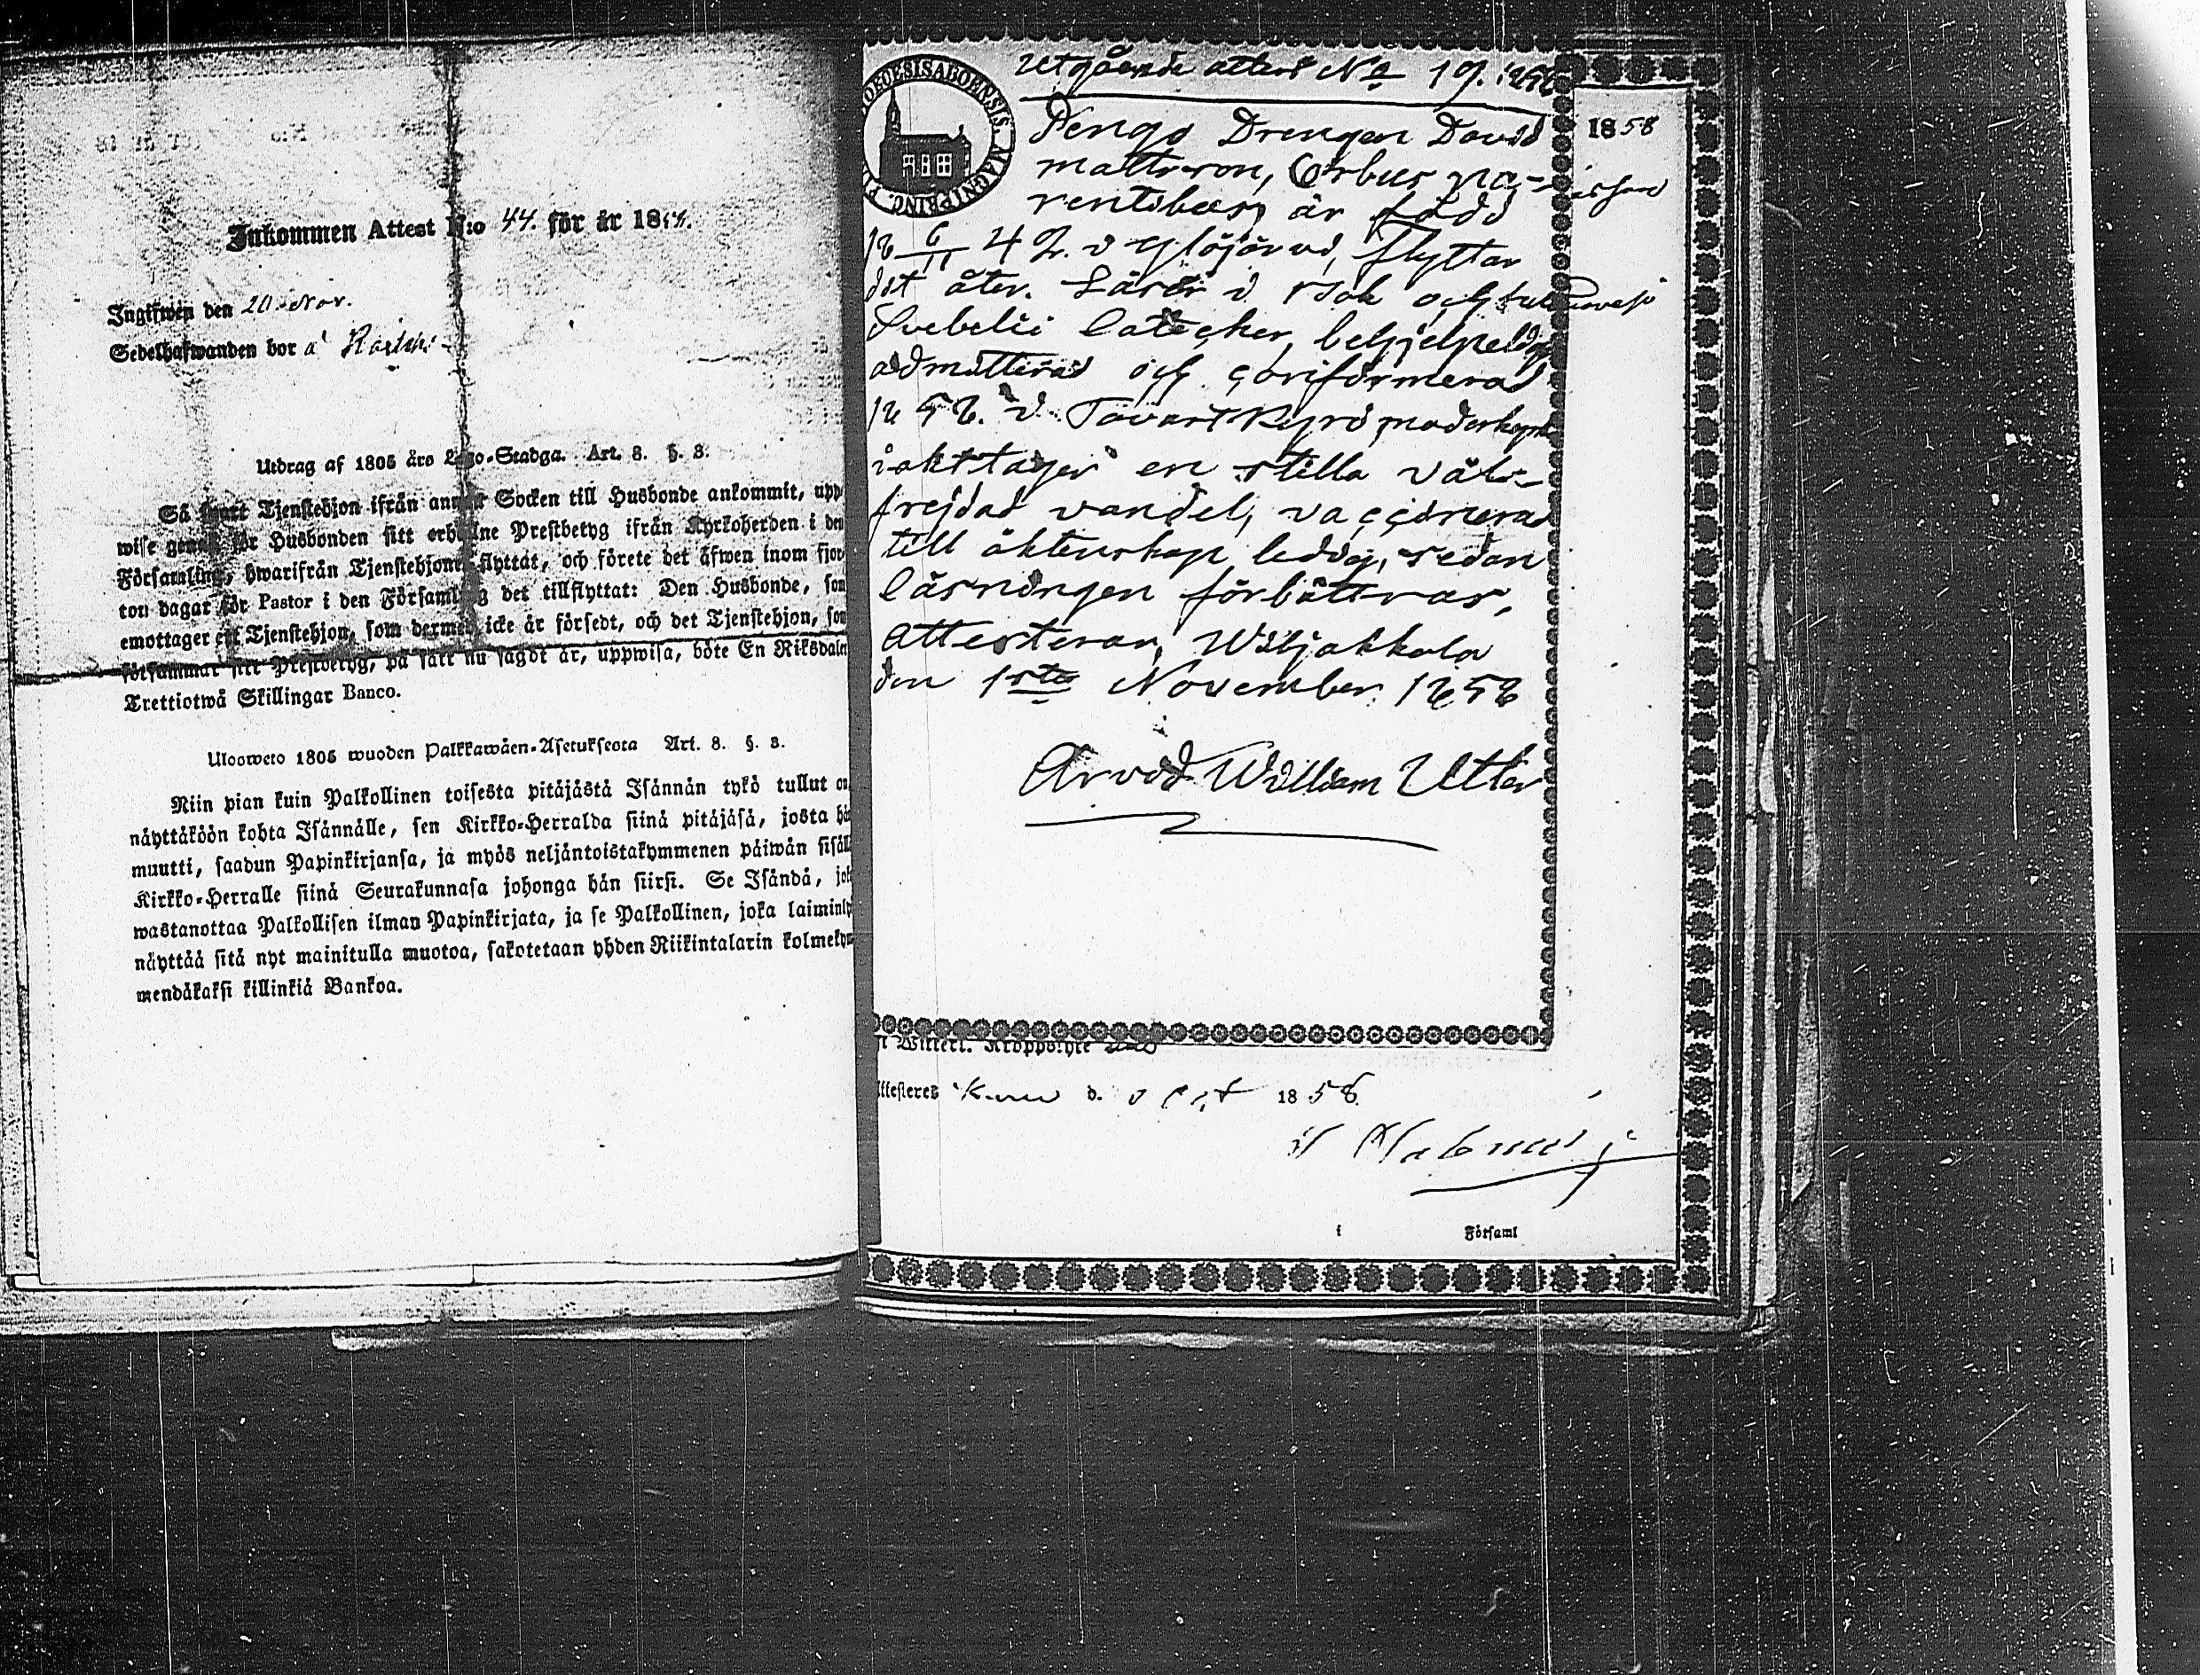 Inkommen Attest N:o 44. för år 1858.
Ingifwen den 20 Nov.
Sedelhafwanden bor å
Utdrag af 1805 års Lego-Stadga. Art. 8. §. 3.
Så snart Tjenstehjon ifrån annor Socken till Husbonde ankommit, upp
wise genast för Husbonden sitt erhållne Prestbetyg ifrån Kyrkoherden i den
Församling, hwarifrån Tjenstehjonet flyttat, och förete det äfwen inom fjor
ton dagar för Pastor i den Församling det tillflyttat: Den Husbonde, som
emottager ett Tjenstehjon, som dermed icke är försedt, och det Tjenstehjon, som
försummar sitt Prestbetyg, på sätt nu sagdt är, uppwisa, böte En Riksdaler
Trettiotwå Skillingar Banco.
Ulosweto 1805 wuoden Palkkawäen-Asetuksesta Art. 8. §. 3.
Niin pian kuin Palkollinen toisesta pitäjästä Isännän tykö tullut on
näyttäköön kohta Isännälle, sen Kirkko-Herralda siinä pitäjäsä, josta hän
muutti, saadun Papinkirjansa, ja myös neljäntoistakymmenen päiwän sisäll
Kirkko-Herralle siinä Seurakunnasa johonga hän siirsi. Se Isändä, jok
wastanottaa Palkollisen ilman Papinkirjata, ja se Palkollinen, joka laiminly
näyttää sitä nyt mainitulla muotoa, sakotetaan yhden Riikintalarin kolmekym
mendäkaksi killinkiä Bankoa.
DIOECESIS ABOENSIS. MAGNI PRINC. FI
Utgående attest No 19. 1858
1858
Drengen David
mattsson, Orbus pa-
rentibus, är född
18 6/11 42. i flyttar
dit åter. Läser i bok och
Svebelii cateches behjelpeligt
admitterad och confirmerad
1858. i Tavastkyrö moderkyrka
iakttager en stilla väl-
frejdad vandel, vaccinerad
till äktenskap ledig, sedan
läsningen förbättras,
attesterar, Wiljakkala
den 1ste November 1858
Arvid William Utter
Attesteres d. 1858
i Församl